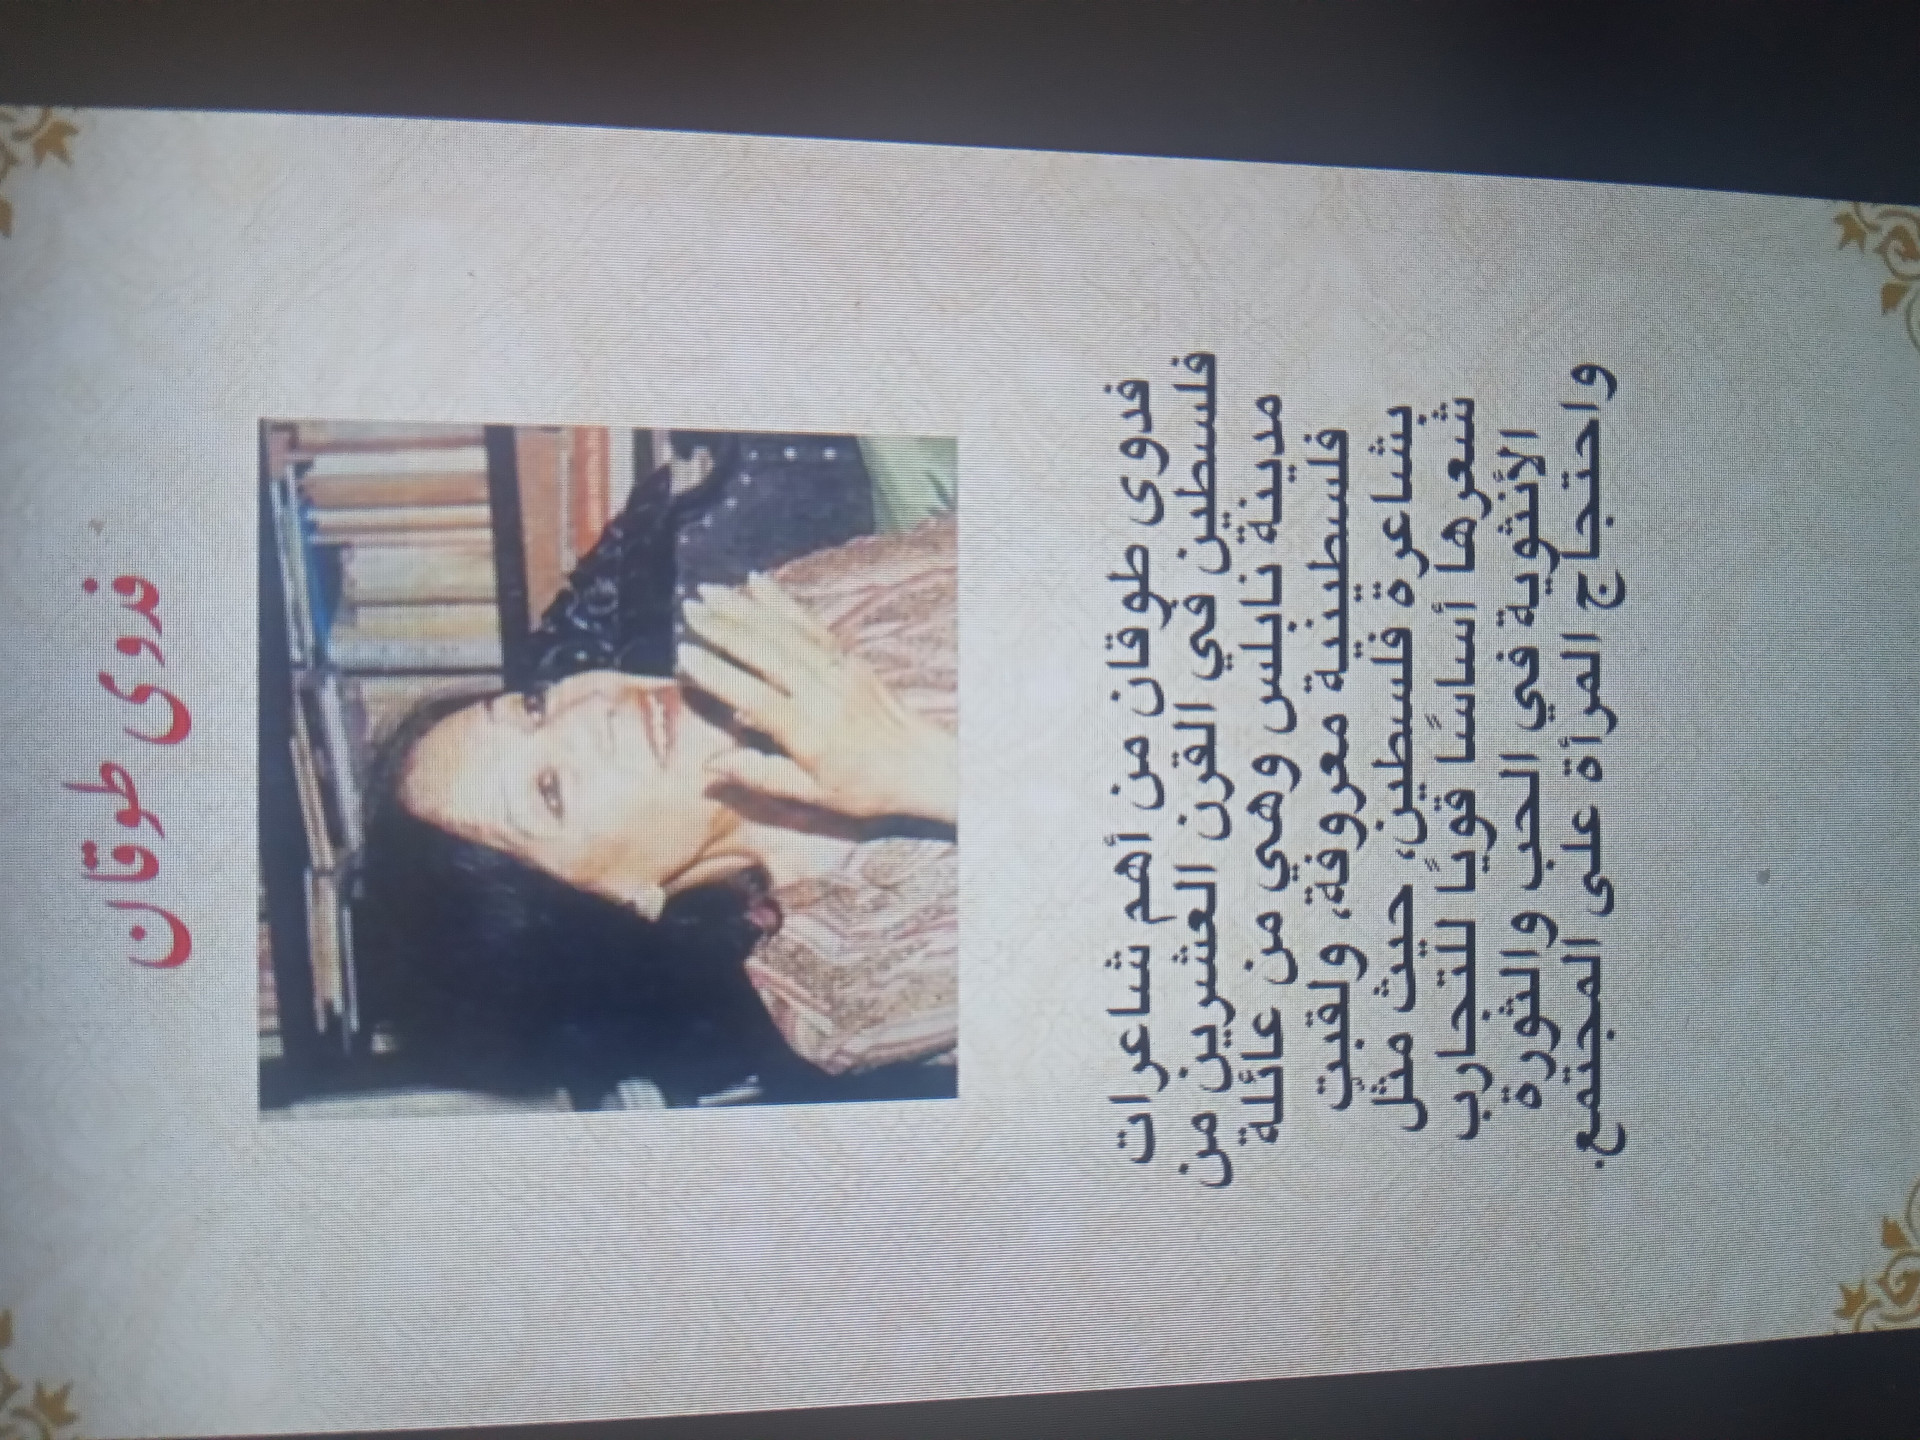 فدوى طوقان
فدوى طوقان من أهم شاعرات
فلسطين في القرن العشرين من
مدينة نابلس وهي من عائلة
فلسطينية معروفة، ولقبت
بشاعرة فلسطين، حيث مثل
شعرها أساسًا قويًا للتجارب
الأنثوية في الحب والثورة
واحتجاج المرأة على المجتمع.